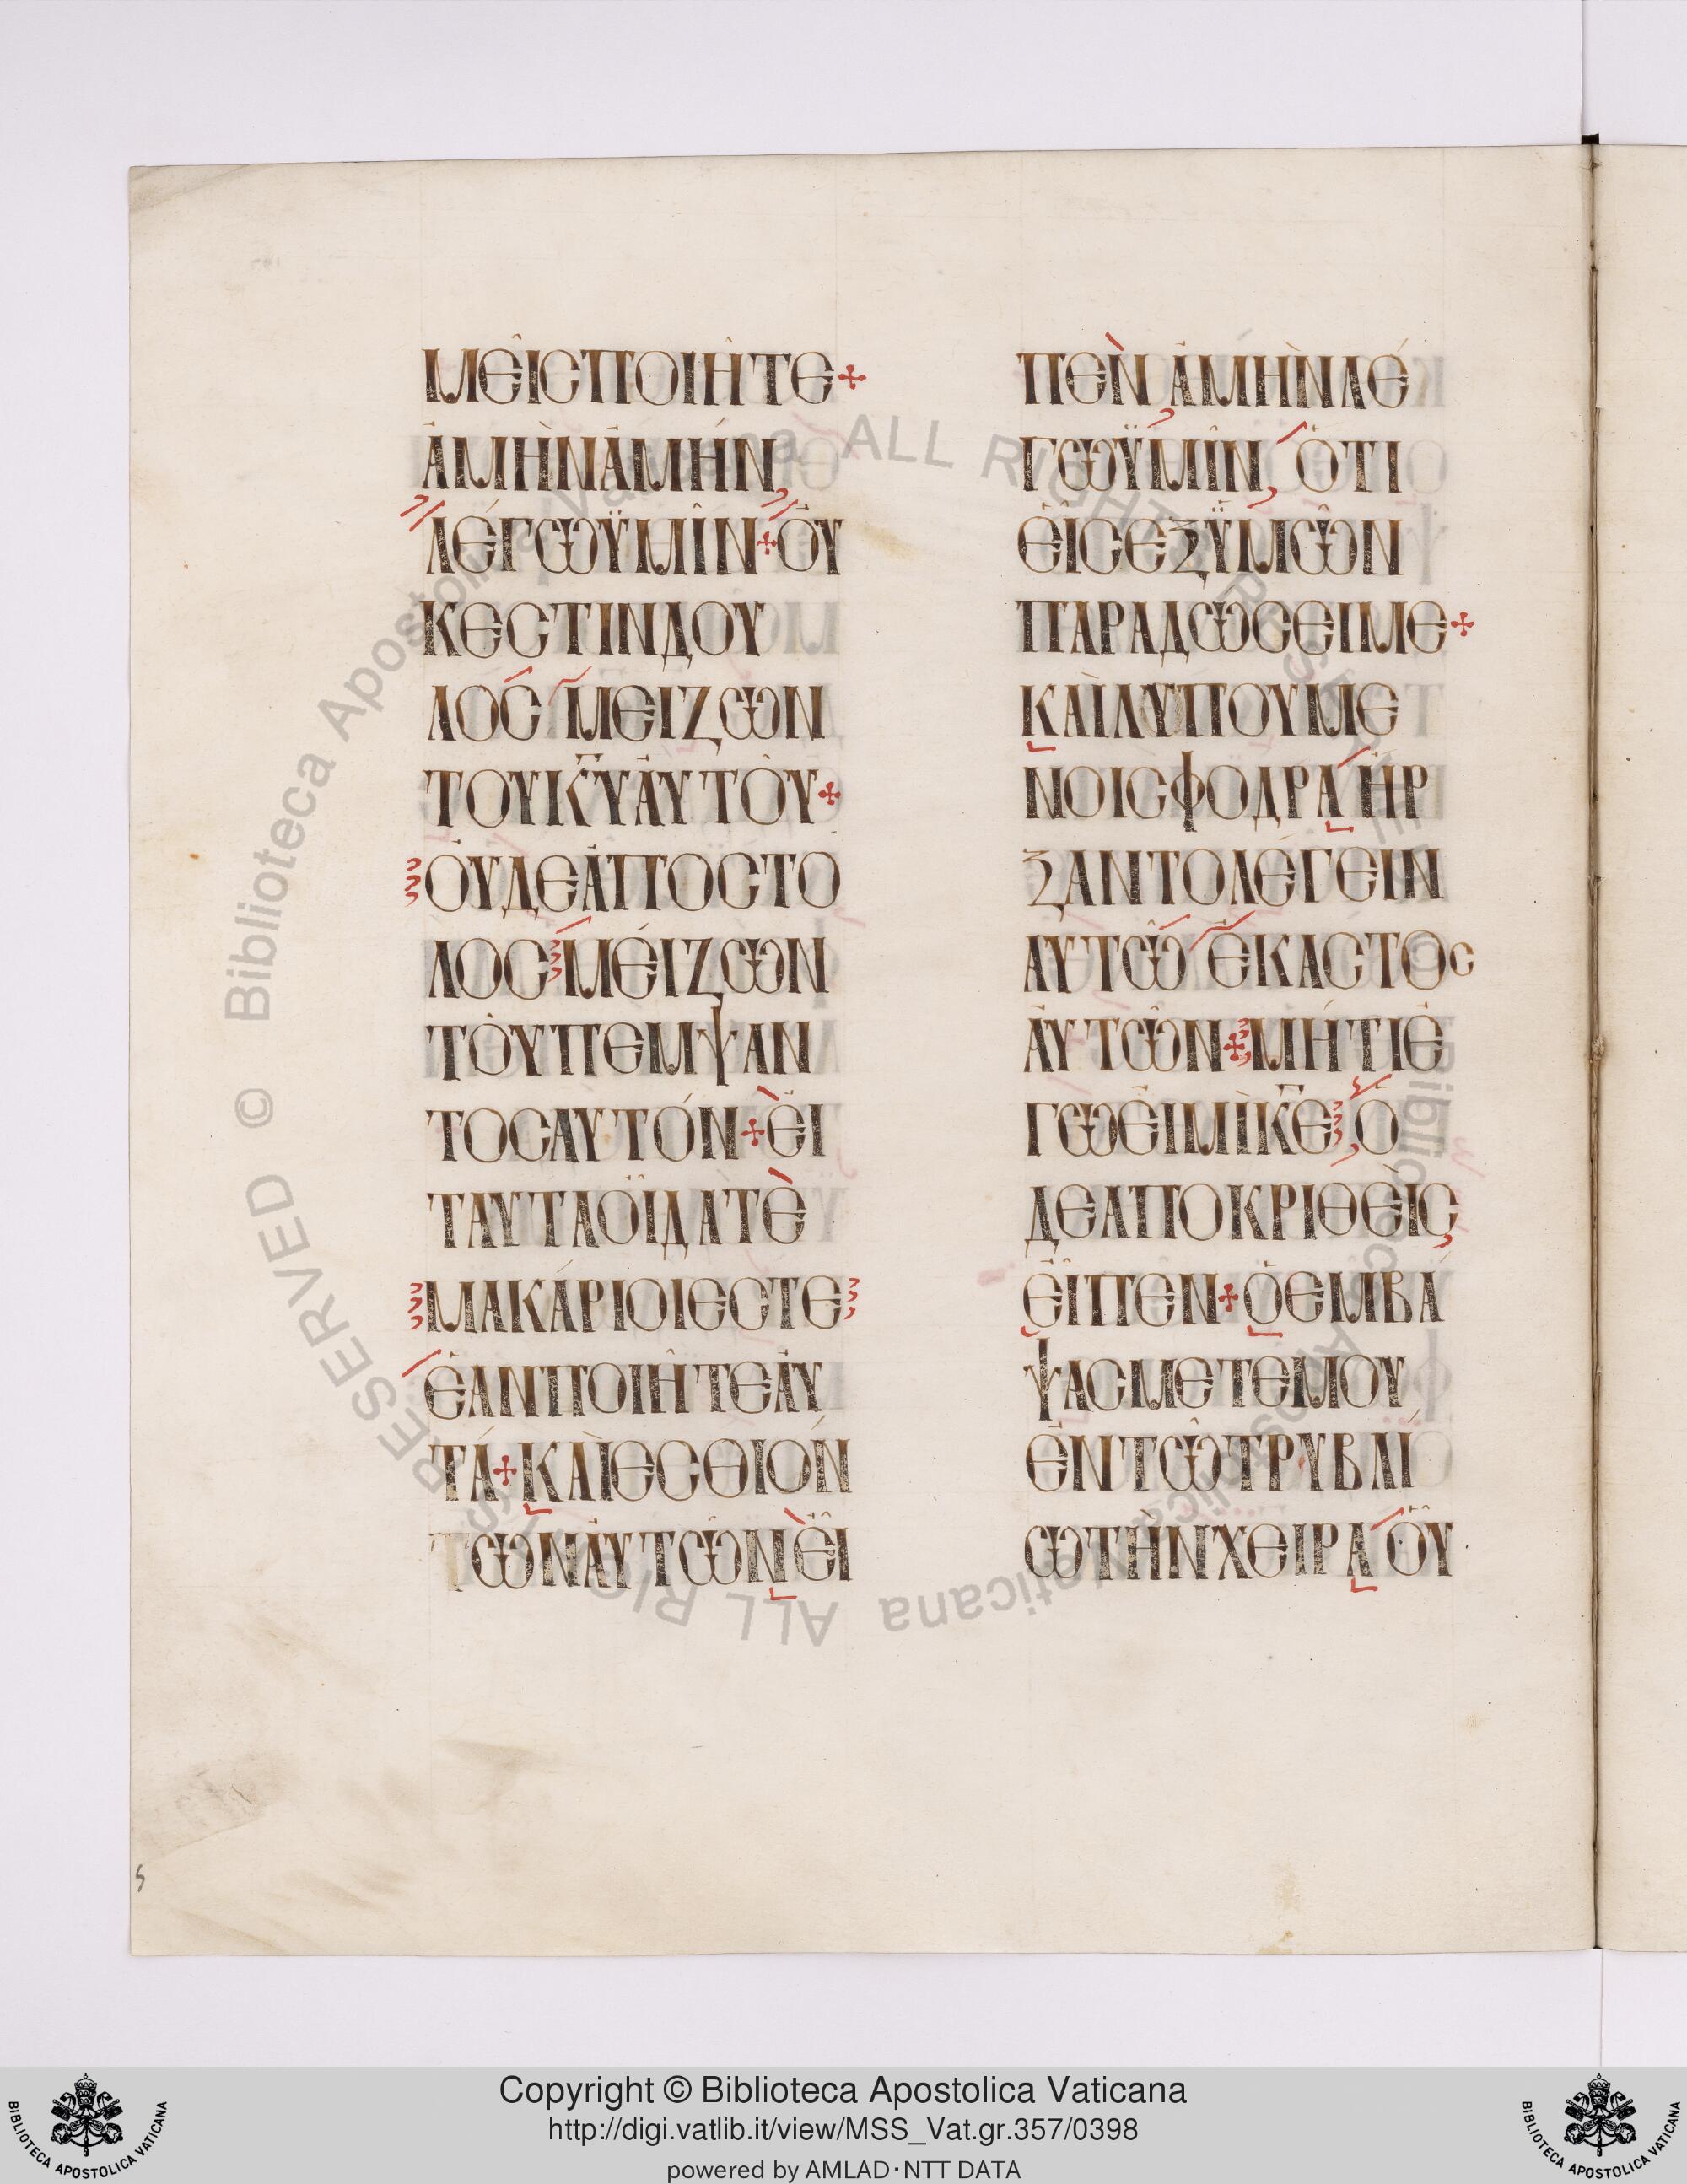 ΜΕῖCΠΟΙΗ̂ΤΕ+
ἈΜῊΝἈΜΉΝ
ΛΈΓωΫΜῖΝ+ὈΥ
ΚΕCΤΙΝΔΟΥ
ΛΟC ΜΕΙΖωΝ
ΤΟΥΚ̅Υ̅ἈΥΤΟ̂Υ+
ὈΥΔΕἈΠΟCΤΟ
ΛΟCΜΕΊΖωΝ
ΤΟ̂ΥΠΕΜΨΑΝ
ΤΟCΑΥΤΌΝ+ἘΙ
ΤΑΥΤΑΟἸΔΑΤῈ
ΜΑΚΆΡΙΟΙΕCΤΕ
ἘΑΝΠΟΙΗ̂ΤΕἈΥ
ΤΆ+ΚΑῚΕCΘΙΟΝ́
ΤωΝἈΥΤω̂ΝἘΙ
ΠΕΝ̀ἈΜῊΝΛΈ
ΓωΫΜῖΝ,ὍΤΙ
ἙΙ͂CΕΞΫΜω̂Ν
ΠΑΡΑΔωCΕΙΜΕ+
ΚΑῚΛΥΠΟΥΜΕ
ΝΟΙCΦΟΔΡΑἨΡ
ΞΑΝΤΟΛΈΓΕΙΝ
ΑΥΤω̂ἝΚΑCΤΟC
ἈΥΤω̂Ν+ΜΉΤΙἘ
ΓωἘΙΜῚΚ̅Ε̅Ὁ
ΔΕΑΠΟΚΡΙΘΕῚC
ἘΙ͂ΠΕΝ+ὉΕΜΒΆ
ΨΑCΜΕΤΕΜΟΥ
ἘΝΤω̂ΤΡΥΒΛΊ
ωΤῊΝΧΕΙΡΑὉΥ
5
© Biblioteca Apostolica Vaticana ALL RIGHTS RESERVED
Copyright © Biblioteca Apostolica Vaticana
http://digi.vatlib.it/view/MSS_Vat.gr.357/0398
powered by AMLAD·NTT DATA
BIBLIOTECA APOSTOLICA VATICANA
BIBLIOTECA APOSTOLICA VATICANA